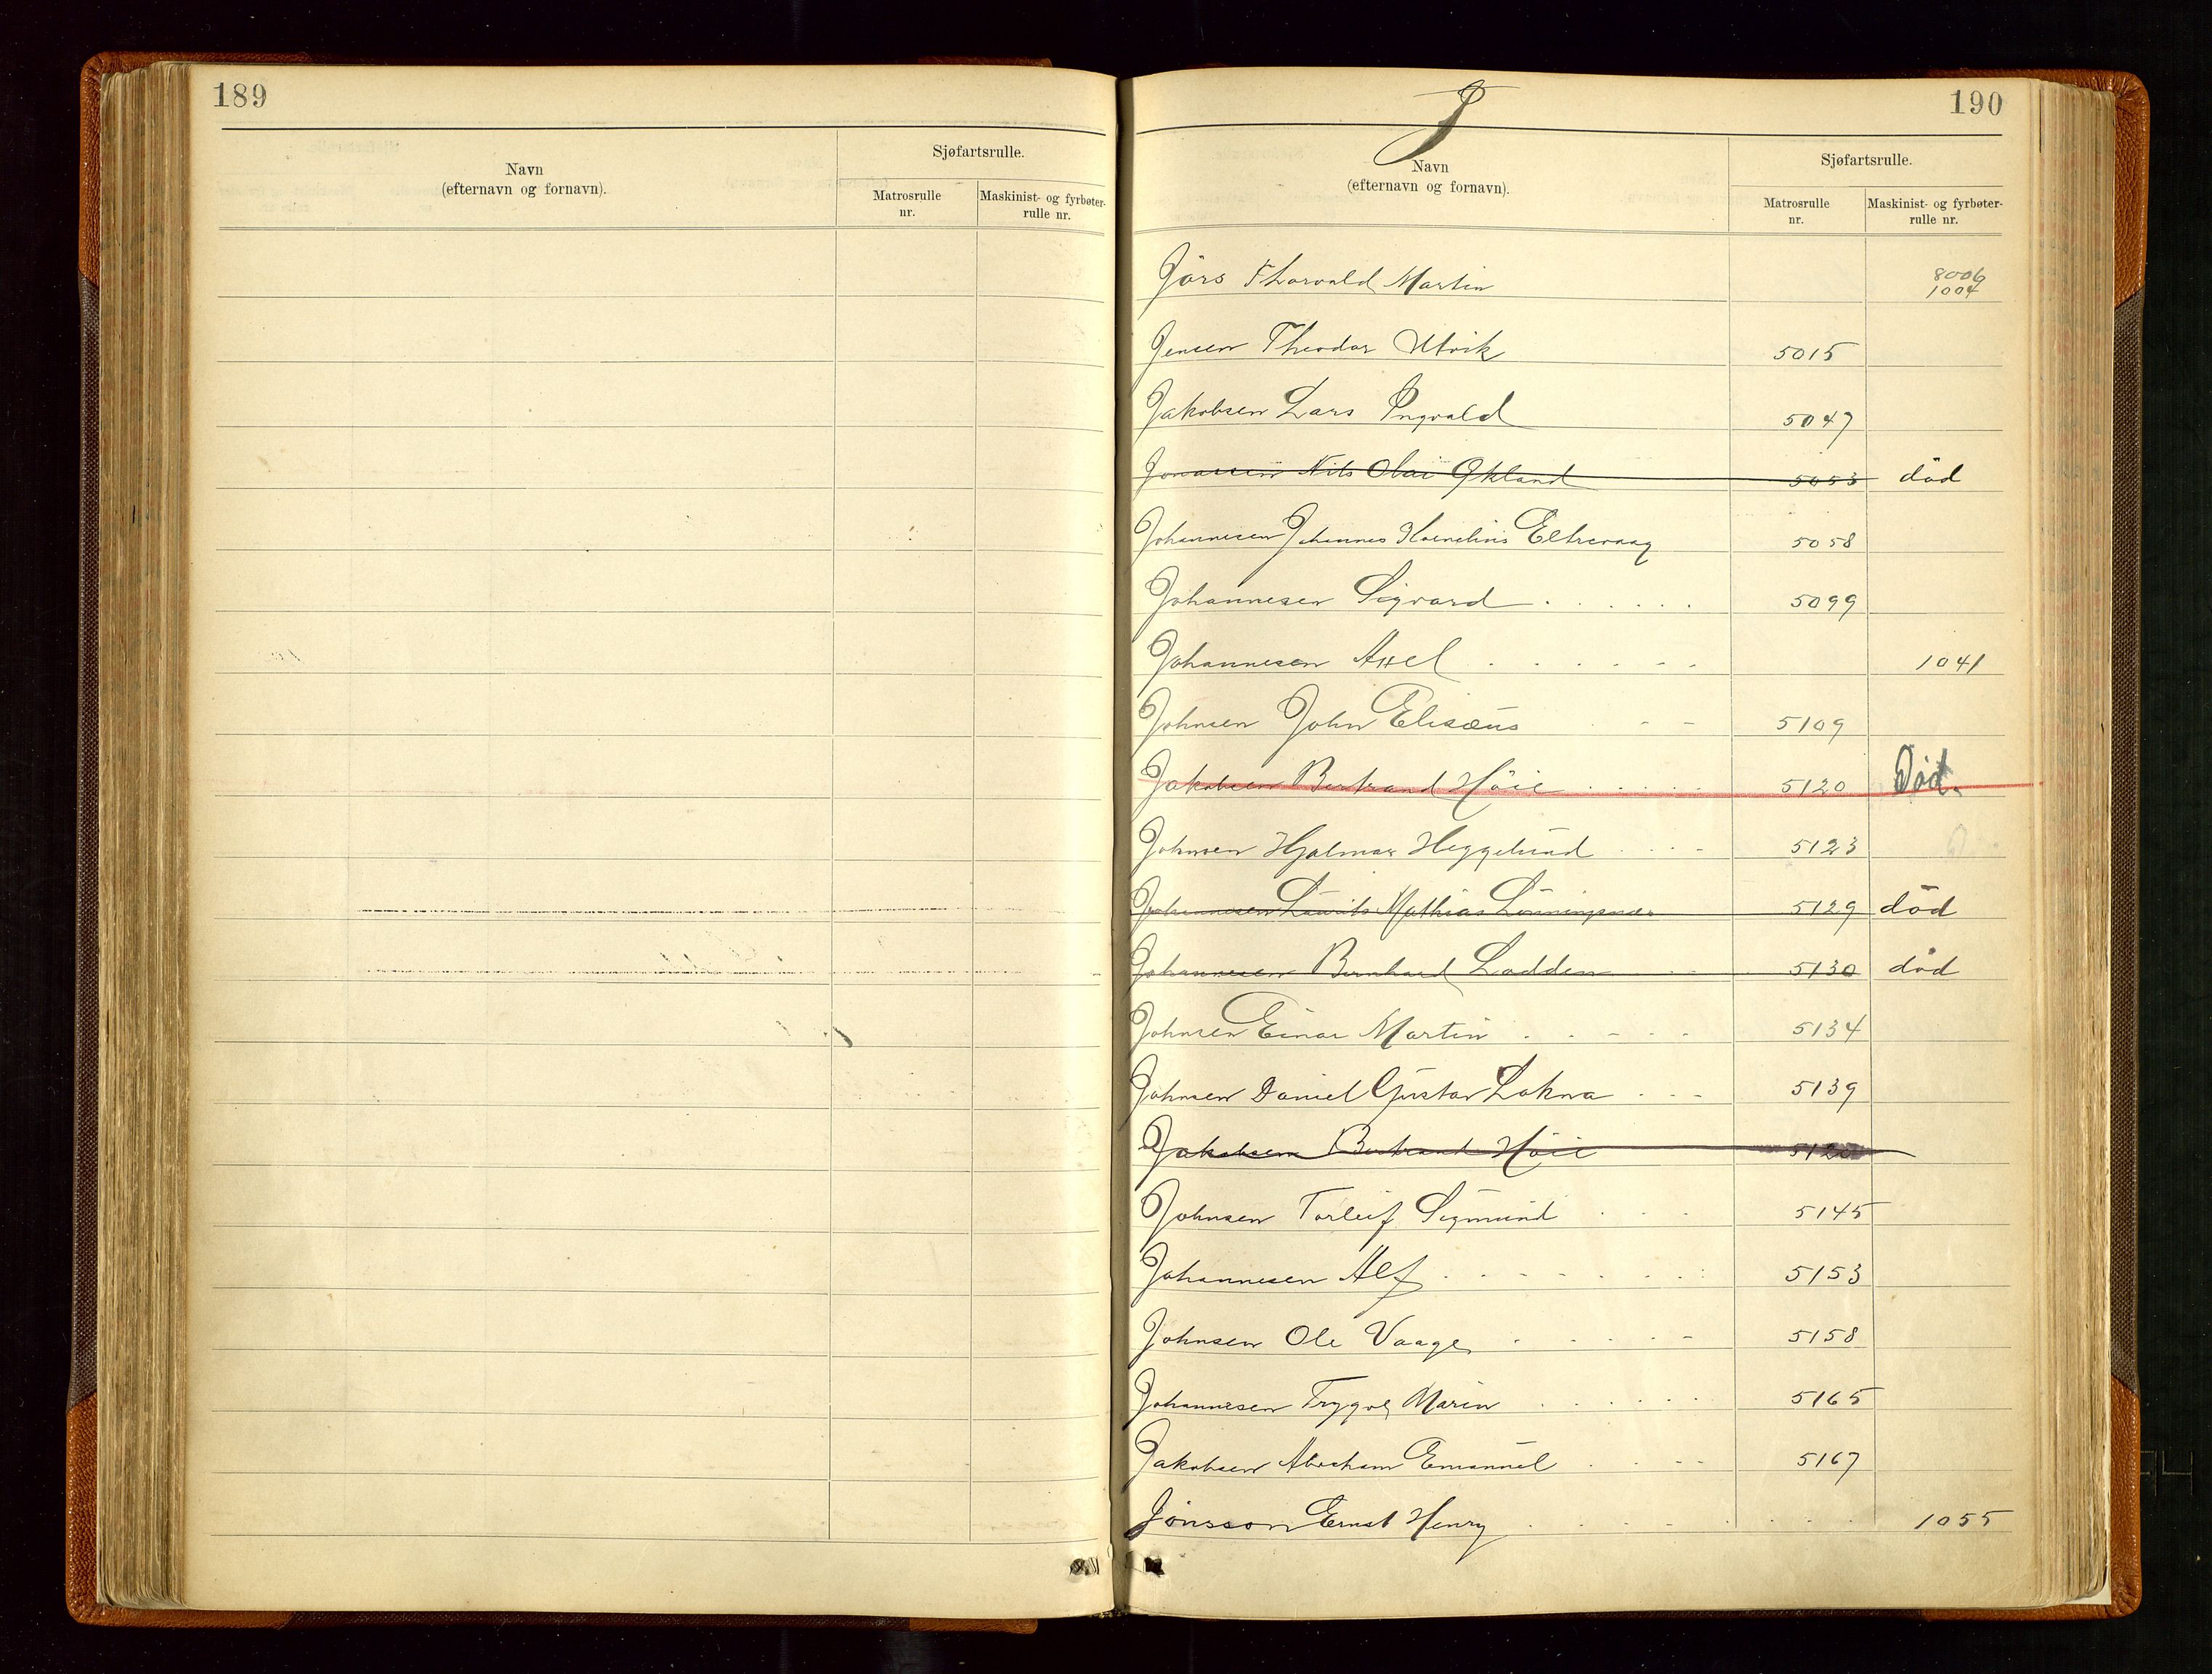 189
Navn
(efternavn og fornavn).
Sjøfartsrulle.
Matrosrulle
nr.
Maskinist- og fyrbøter-
rulle nr.
J
190
Navn
(efternavn og fornavn).
Sjøfartsrulle.
Matrosrulle
nr.
Maskinist- og fyrbøter-
rulle nr.
Jörs Thorvald Martin 8006
1004
Jensen Theodor Utvik 5015
Jakobsen Lars Ingvald 5047
Jonassen Nils Olai Økland 5053 död
Johannesen Johannes Kornelius Eltrevaag 5058
Johannesen Sigvard 5099
Johannesen Axel 1041
Johnsen John Elisæus 5109
Jakobsen Bertrand Höie 5120 Död.
Johnsen Hjalmar Heggelund 5123
Johannesen Laurits Mathias 5129 död
Johannesen Bernhard Lodden 5130 död
Johnsen Einar Martin 5134
Johnsen Daniel Gustav Lokna 5139
Jakobsen Bertrand Höie 5120
Johnsen Torleif Sigmund 5145
Johannesen Alf 5153
Johnsen Ole Vaage 5158
Johannesen Trygve Marin 5165
Jakobsen Abraham Emanuel 5167
Jönsson Ernst Henry 1055